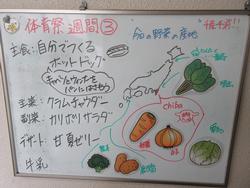 体育祭週間③
今日の野菜の産地
主食：自分でつくる
ホットドッグ
キャベツとウィンナーを
パンにはさもう
主菜：クラムチャウダー
副菜：カリポリサラダ
デザート：甘夏ゼリー
牛乳
chiba